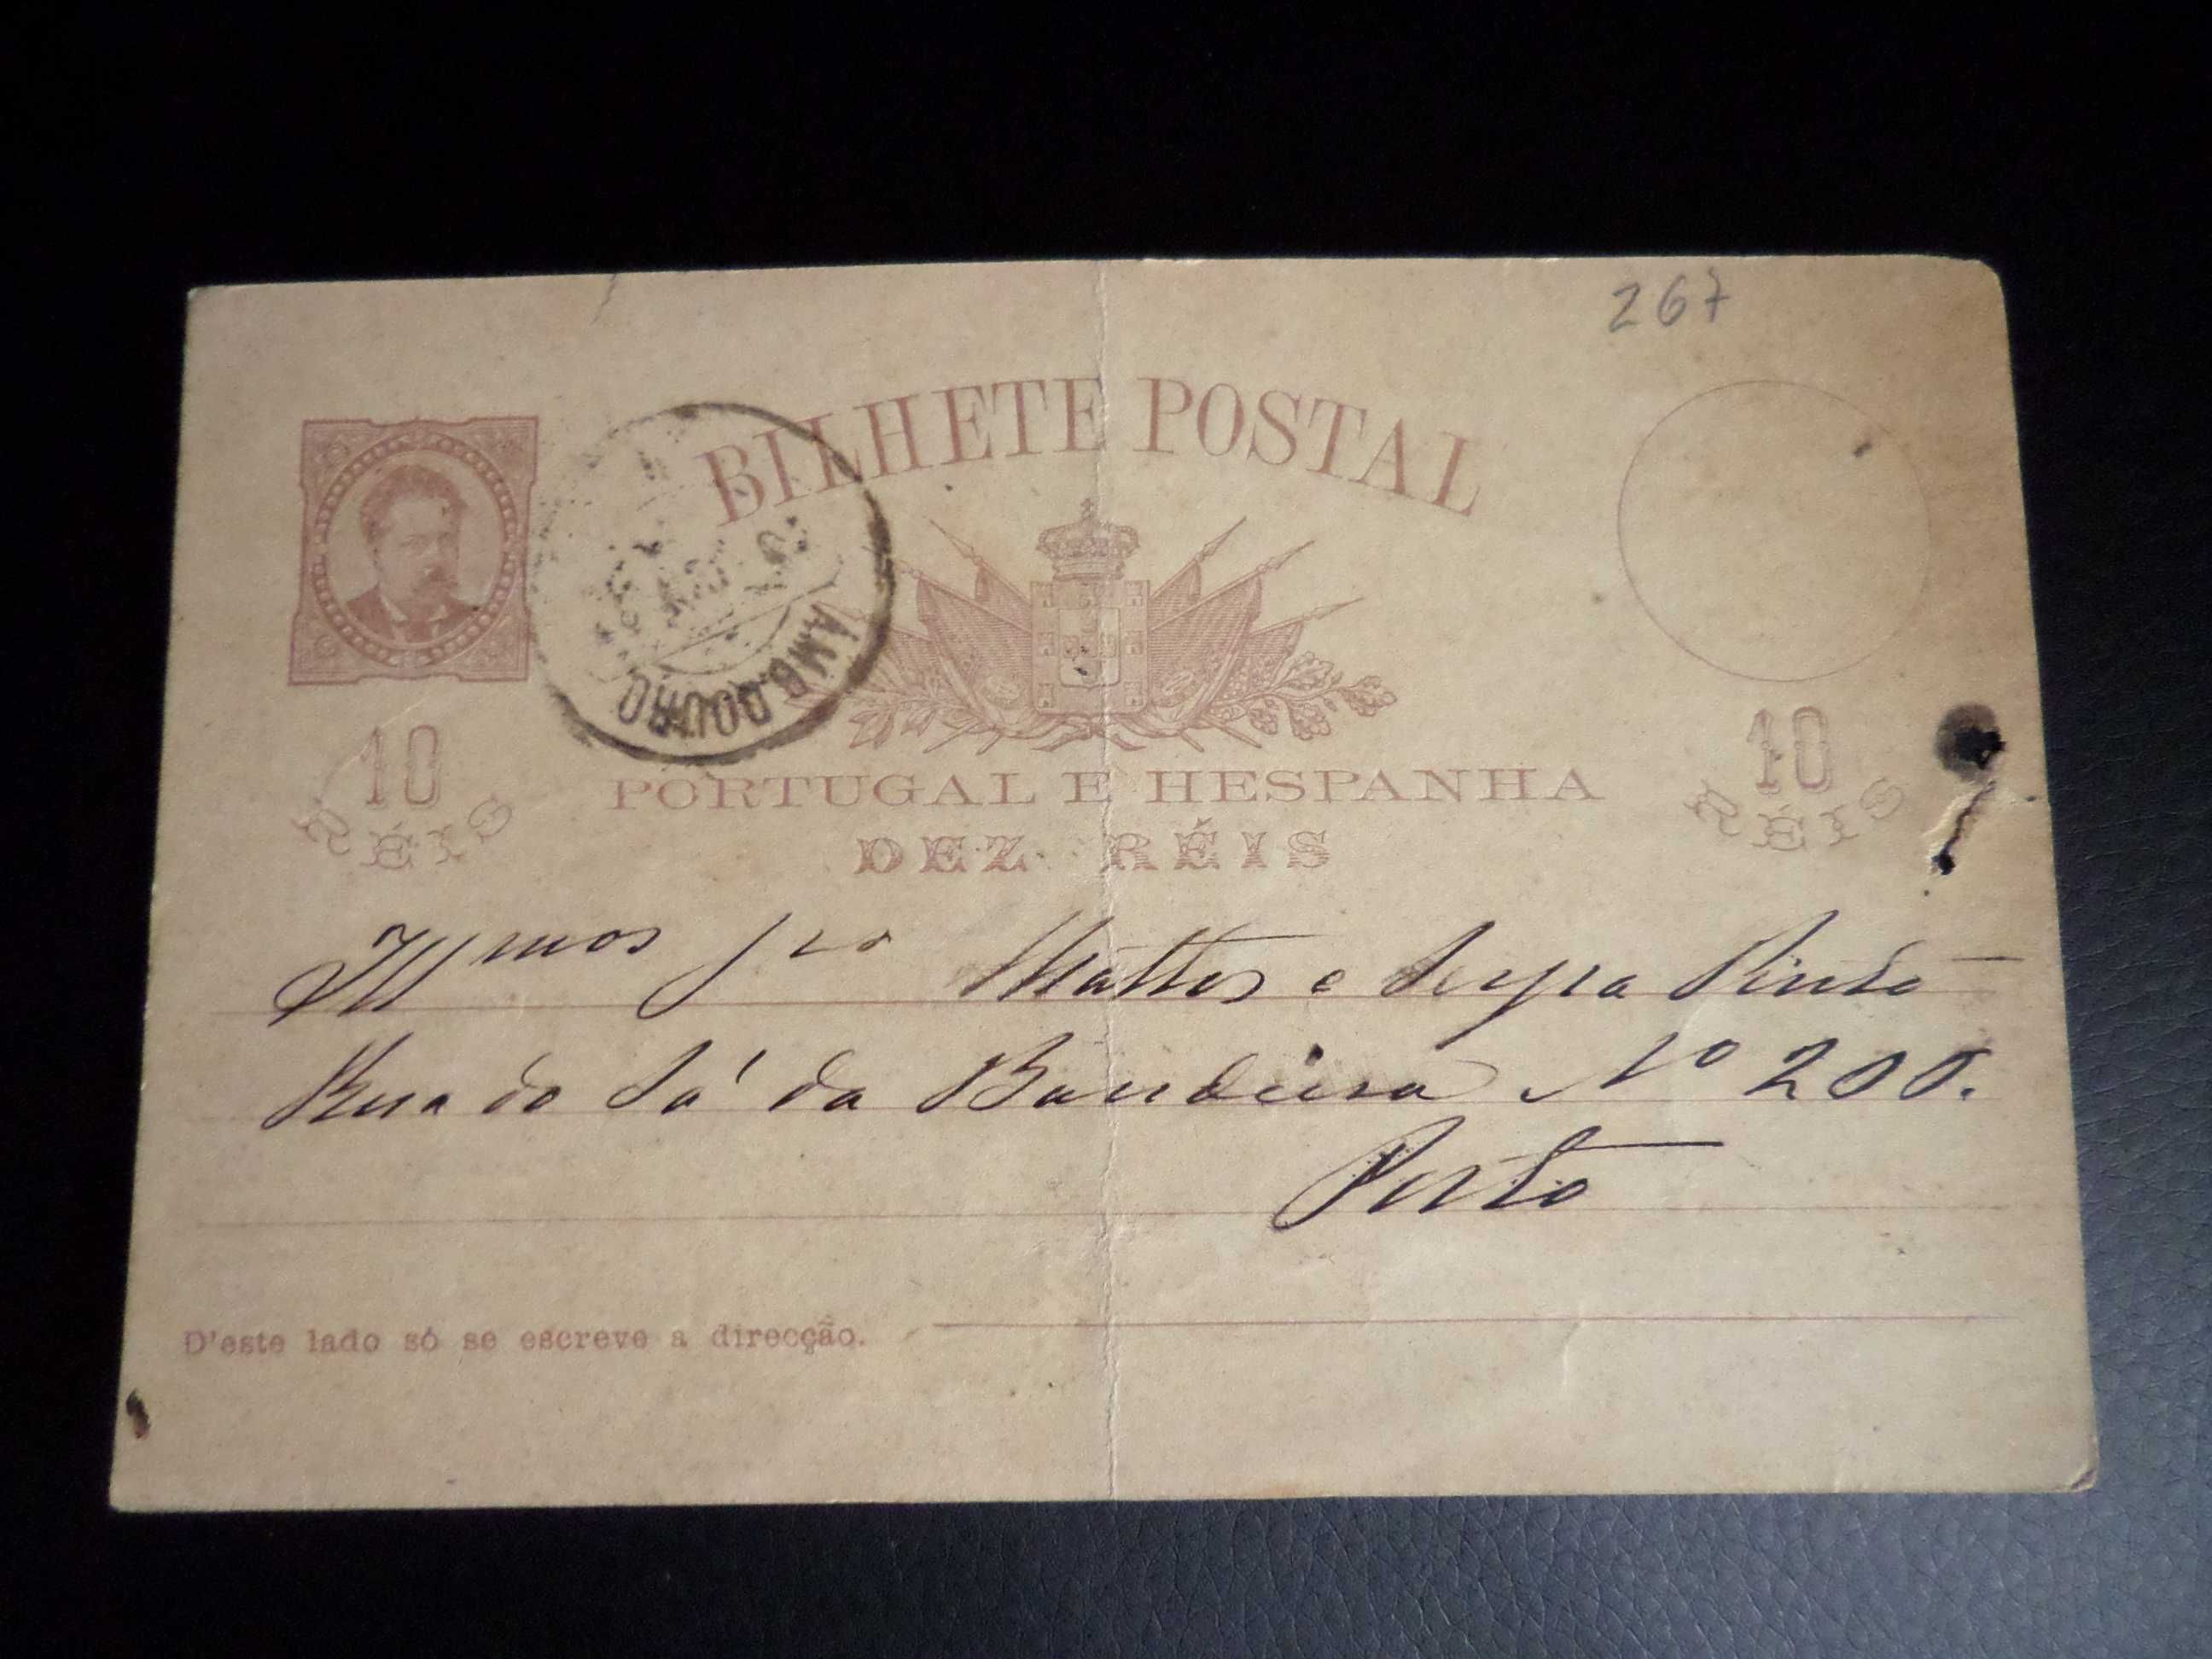 267
BILHETE POSTAL
AMB. DOURO
10 RÉIS
10 RÉIS
PORTUGAL E HESPANHA
DEZ RÉIS
Illmos Snrs Mattos e Serpa Pinto
Rua do Sá da Bandeira Nº 200.
Porto
D'este lado só se escreve a direcção.